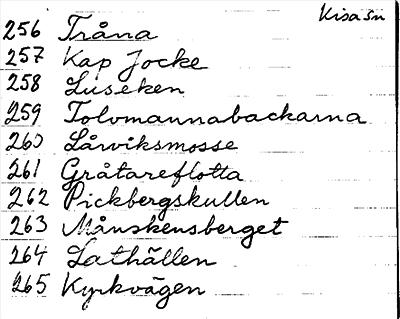 Kisa sn
256 Tråna
257 Kap Jocke
258 Luseken
259 Tolvmannabackarna
260 Lårviksmosse
261 Gråtareflotta
262 Pickbergskullen
263 Månskensberget
264 Lathällen
265 Kyrkvägen